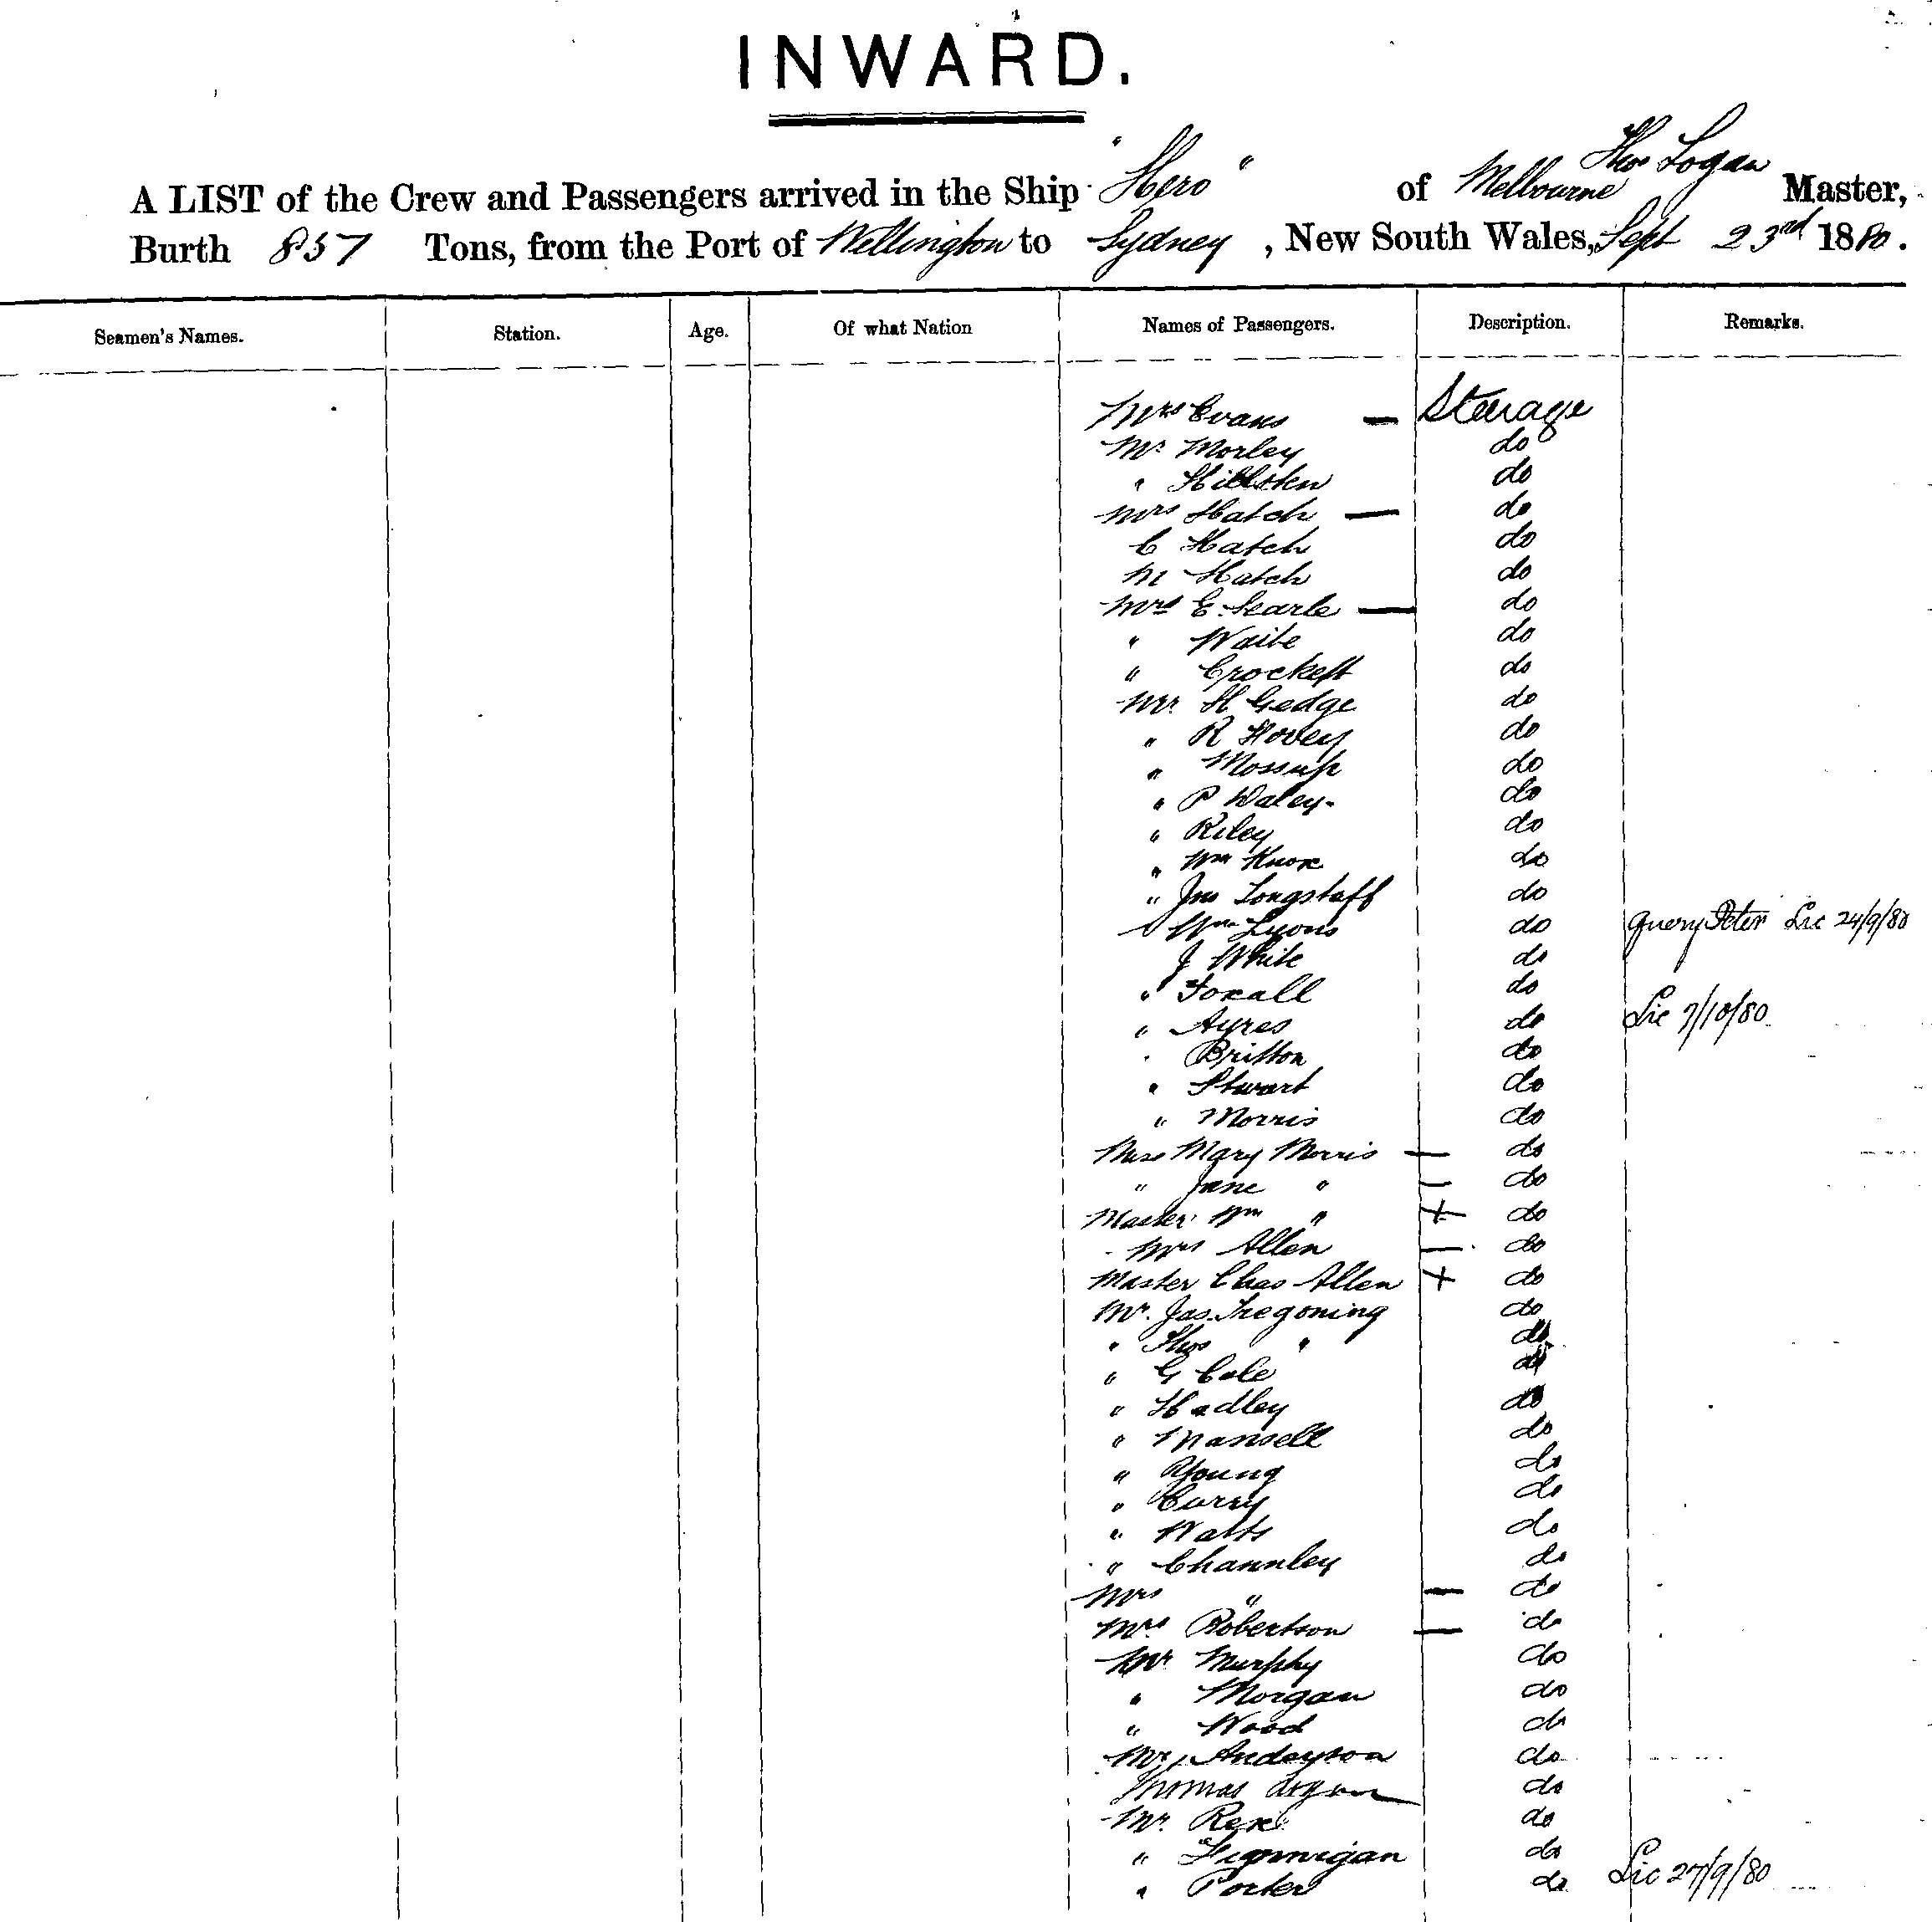 INWARD.
A LIST of the Crew and Passengers arrived in the Ship "Hero" of Melbourne Thos Logan Master,
Burth 857 Tons, from the Port of Wellington to Sydney, New South Wales, Sept 23rd 1880.
Seamen's Names. Station. Age. Of what Nation Names of Passengers. Description. Remarks.
Mrs Evans — Steerage
Mr Morley do
" do
Mrs Hatch — do
C Hatch do
M Hatch do
Mrs E. Searle — do
" Waite do
" Crockett do
Mr. H Gedge do
" R Hovey do
" Mossup do
" P Daley do
" Riley do
" Wm Knox do
" Jno Longstaff do
Wm Lyons do query Peter Lic 24/9/80
J White do
" Foxall do
" Ayres do Lic 7/10/80
" Britton do
" Stwart do
" Morris do
Miss Mary Morris — do
" Jane " — do
Master Wm " + do
Mrs Allen — do
Master Chas Allen + do
Mr. Jas. Tregoning do
" Thos " do
" G Cole do
" Hadley do
" Mansell do
" Young do
" Curry do
" Watts do
" Channley do
Mrs " — do
Mrs Robertson — do
Mr Murphy do
" Morgan do
" Wood do
Mr. Anderson do
Thomas do
Mr. Rex do
" do
" Porter do Lic 27/9/80